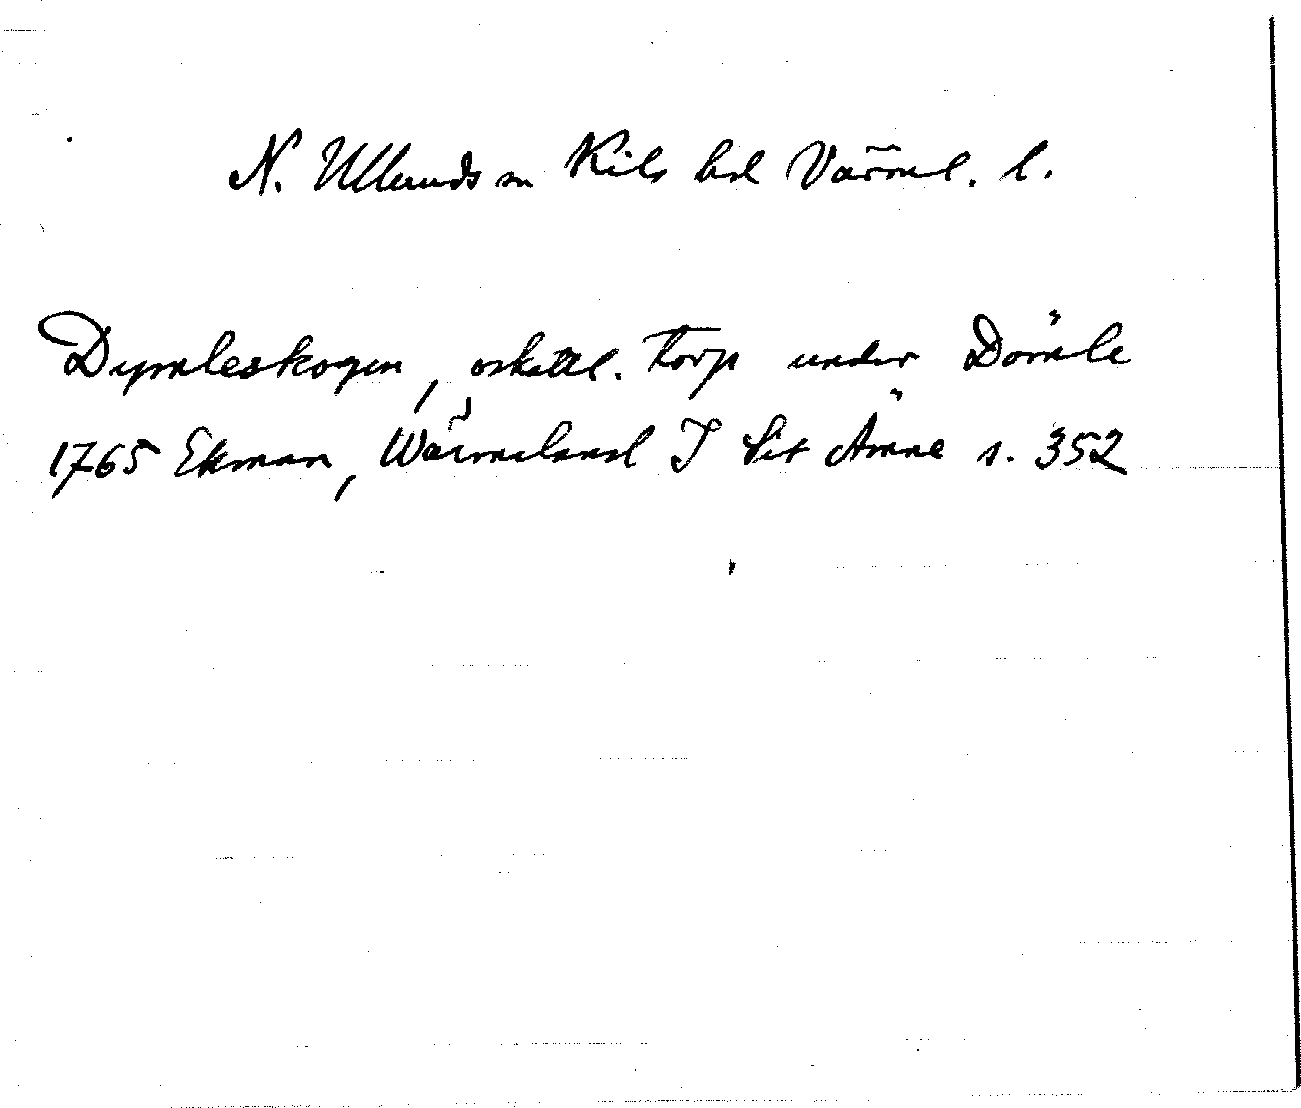 N. Ullerud sn Kils hd Värml. l.
Dymleskogen, oskattl. torp under Dömle
1765 Ekman, Wärmeland I sit Ämne s. 352